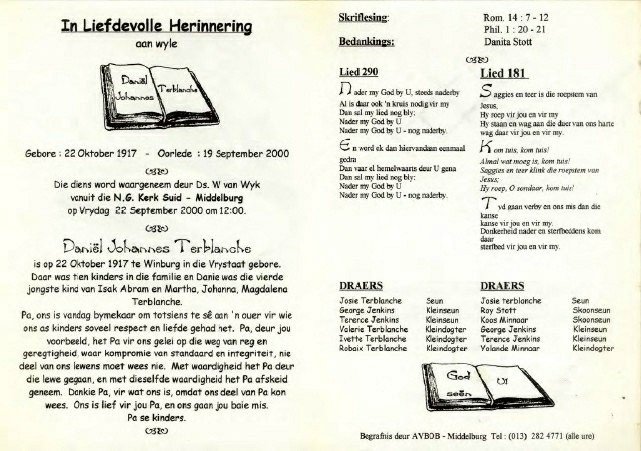 In Liefdevolle Herinnering
aan wyle
Daniël
Johannes
Terblanche
Gebore : 22 Oktober 1917 - Oorlede : 19 September 2000
Die diens word waargeneem deur Ds. W van Wyk
vanuit die N.G. Kerk Suid - Middelburg
op Vrydag 22 September 2000 om 12:00.
Daniël Johannes Terblanche
is op 22 Oktober 1917 te Winburg in die Vrystaat gebore.
Daar was tien kinders in die familie en Danie was die vierde
jongste kind van Isak Abram en Martha, Johanna, Magdalena
Terblanche.
Pa, ons is vandag bymekaar om totsiens te sê aan 'n ouer vir wie
ons as kinders soveel respect en liefde gehad het. Pa, deur jou
voorbeeld, het Pa vir ons gelei op die weg van reg en
geregtigheid, waar kompromie van standaard en integriteit, nie
deel van ons lewens moet wees nie. Met waardigheid het Pa deur
die lewe gegaan, en met dieselfde waardigheid het Pa afskeid
geneem. Dankie Pa, vir wat ons is, omdat ons deel van Pa kon
wees. Ons is lief vir jou Pa, en ons gaan jou baie mis.
Pa se kinders.
Skriflesing: Rom. 14 : 7 - 12
Phil. 1 : 20 - 21
Bedankings: Danita Stott
Lied 290
Nader my God by U, steeds naderby
Al is daar ook 'n kruis nodig vir my
Dan sal my lied nog bly:
Nader my God by U
Nader my God by U - nog naderby.
En word ek dan hiervandaan eenmaal
gedra
Dan vaar el hemelwaarts deur U gena
Dan sal my lied nog bly:
Nader my God by U
Nader my God by U - nog naderby.
Lied 181
Saggies en teer is die roepstem van
Jesus,
Hy roep vir jou en vir my
Hy staan en wag aan die duer van ons harte
wag daar vir jou en vir my.
Kom tuis, kom tuis!
Almal wat moeg is, kom tuis!
Saggies en teer klink die roepstem van
Jesus;
Hy roep, O sondaar, kom tuis!
Tyd gaan verby en ons mis dan die
kanse
kanse vir jou en vir my.
Donkerheid nader en sterfbeddens kom
daar
sterfbed vir jou en vir my.
DRAERS
Josie Terblanche Seun
George Jenkins Kleinseun
Terence Jenkins Kleinseun
Valerie Terblanche Kleindogter
Ivette Terblanche Kleindogter
Robaix Terblanche Kleindogter
DRAERS
Josie terblanche Seun
Roy Stott Skoonseun
Koos Minnaar Skoonseun
George Jenkins Kleinseun
Terence Jenkins Kleinseun
Yolande Minnaar Kleindogter
God
seën
U!
Begrafnis deur AVBOB - Middelburg Tel : (013) 282 4771 (alle ure)